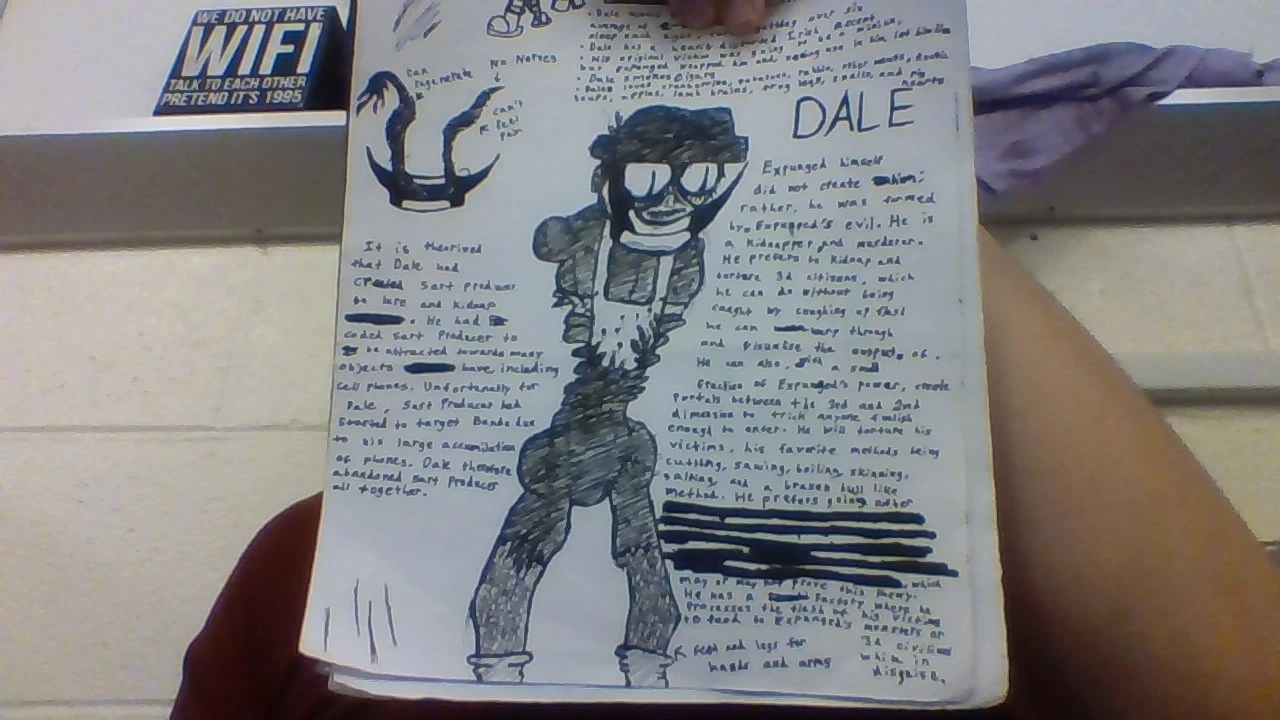 WE DO NOT HAVE
WIFI
TALK TO EACH OTHER
PRETEND IT'S 1995
• Dale over six
average of
• Dale has a Irish accent.
• His original victim was going to be a minion,
but Expunged in him, let him live
• Dale smokes cigars
• Dale loves cranberries, potatoes, rabbit, other meats, exotic
soups, apples, lamb brains, frog legs, snails, and pig
hearts
can
regenerate
No Nerves
can't
feel
pain
DALE
Expunged himself
did not create him;
rather, he was formed
by Expunged's evil. He is
a kidnapper and murderer.
He prefers to kidnap and
torture 3d citizens, which
he can do without being
caught by coughing up
he can warp through
and visualize the outputs of.
He can also, with a small
fraction of Expunged's power, create
portals between the 3rd and 2nd
dimension to trick anyone foolish
enough to enter. He will torture his
victims, his favorite methods being
cutting, sawing, boiling, skinning,
salting, and a brazen bull like
method. He prefers going after
may or may not prove this theory.
He has a Factory where he
processes the flesh of his victims
to feed to Expunged's monsters or
3d civilians
while in
disguise.
It is theorized
that Dale had
created Sart Producer
to lure and kidnap
. He had
coded Sart Producer to
be attracted towards many
objects have including
cell phones. Unfortunatly for
Dale, Sart Producer had
started to target Bandu due
to his large accumilation
of phones. Dale therefore
abandoned Sart Producer
all together.
feet and legs for
hands and arms